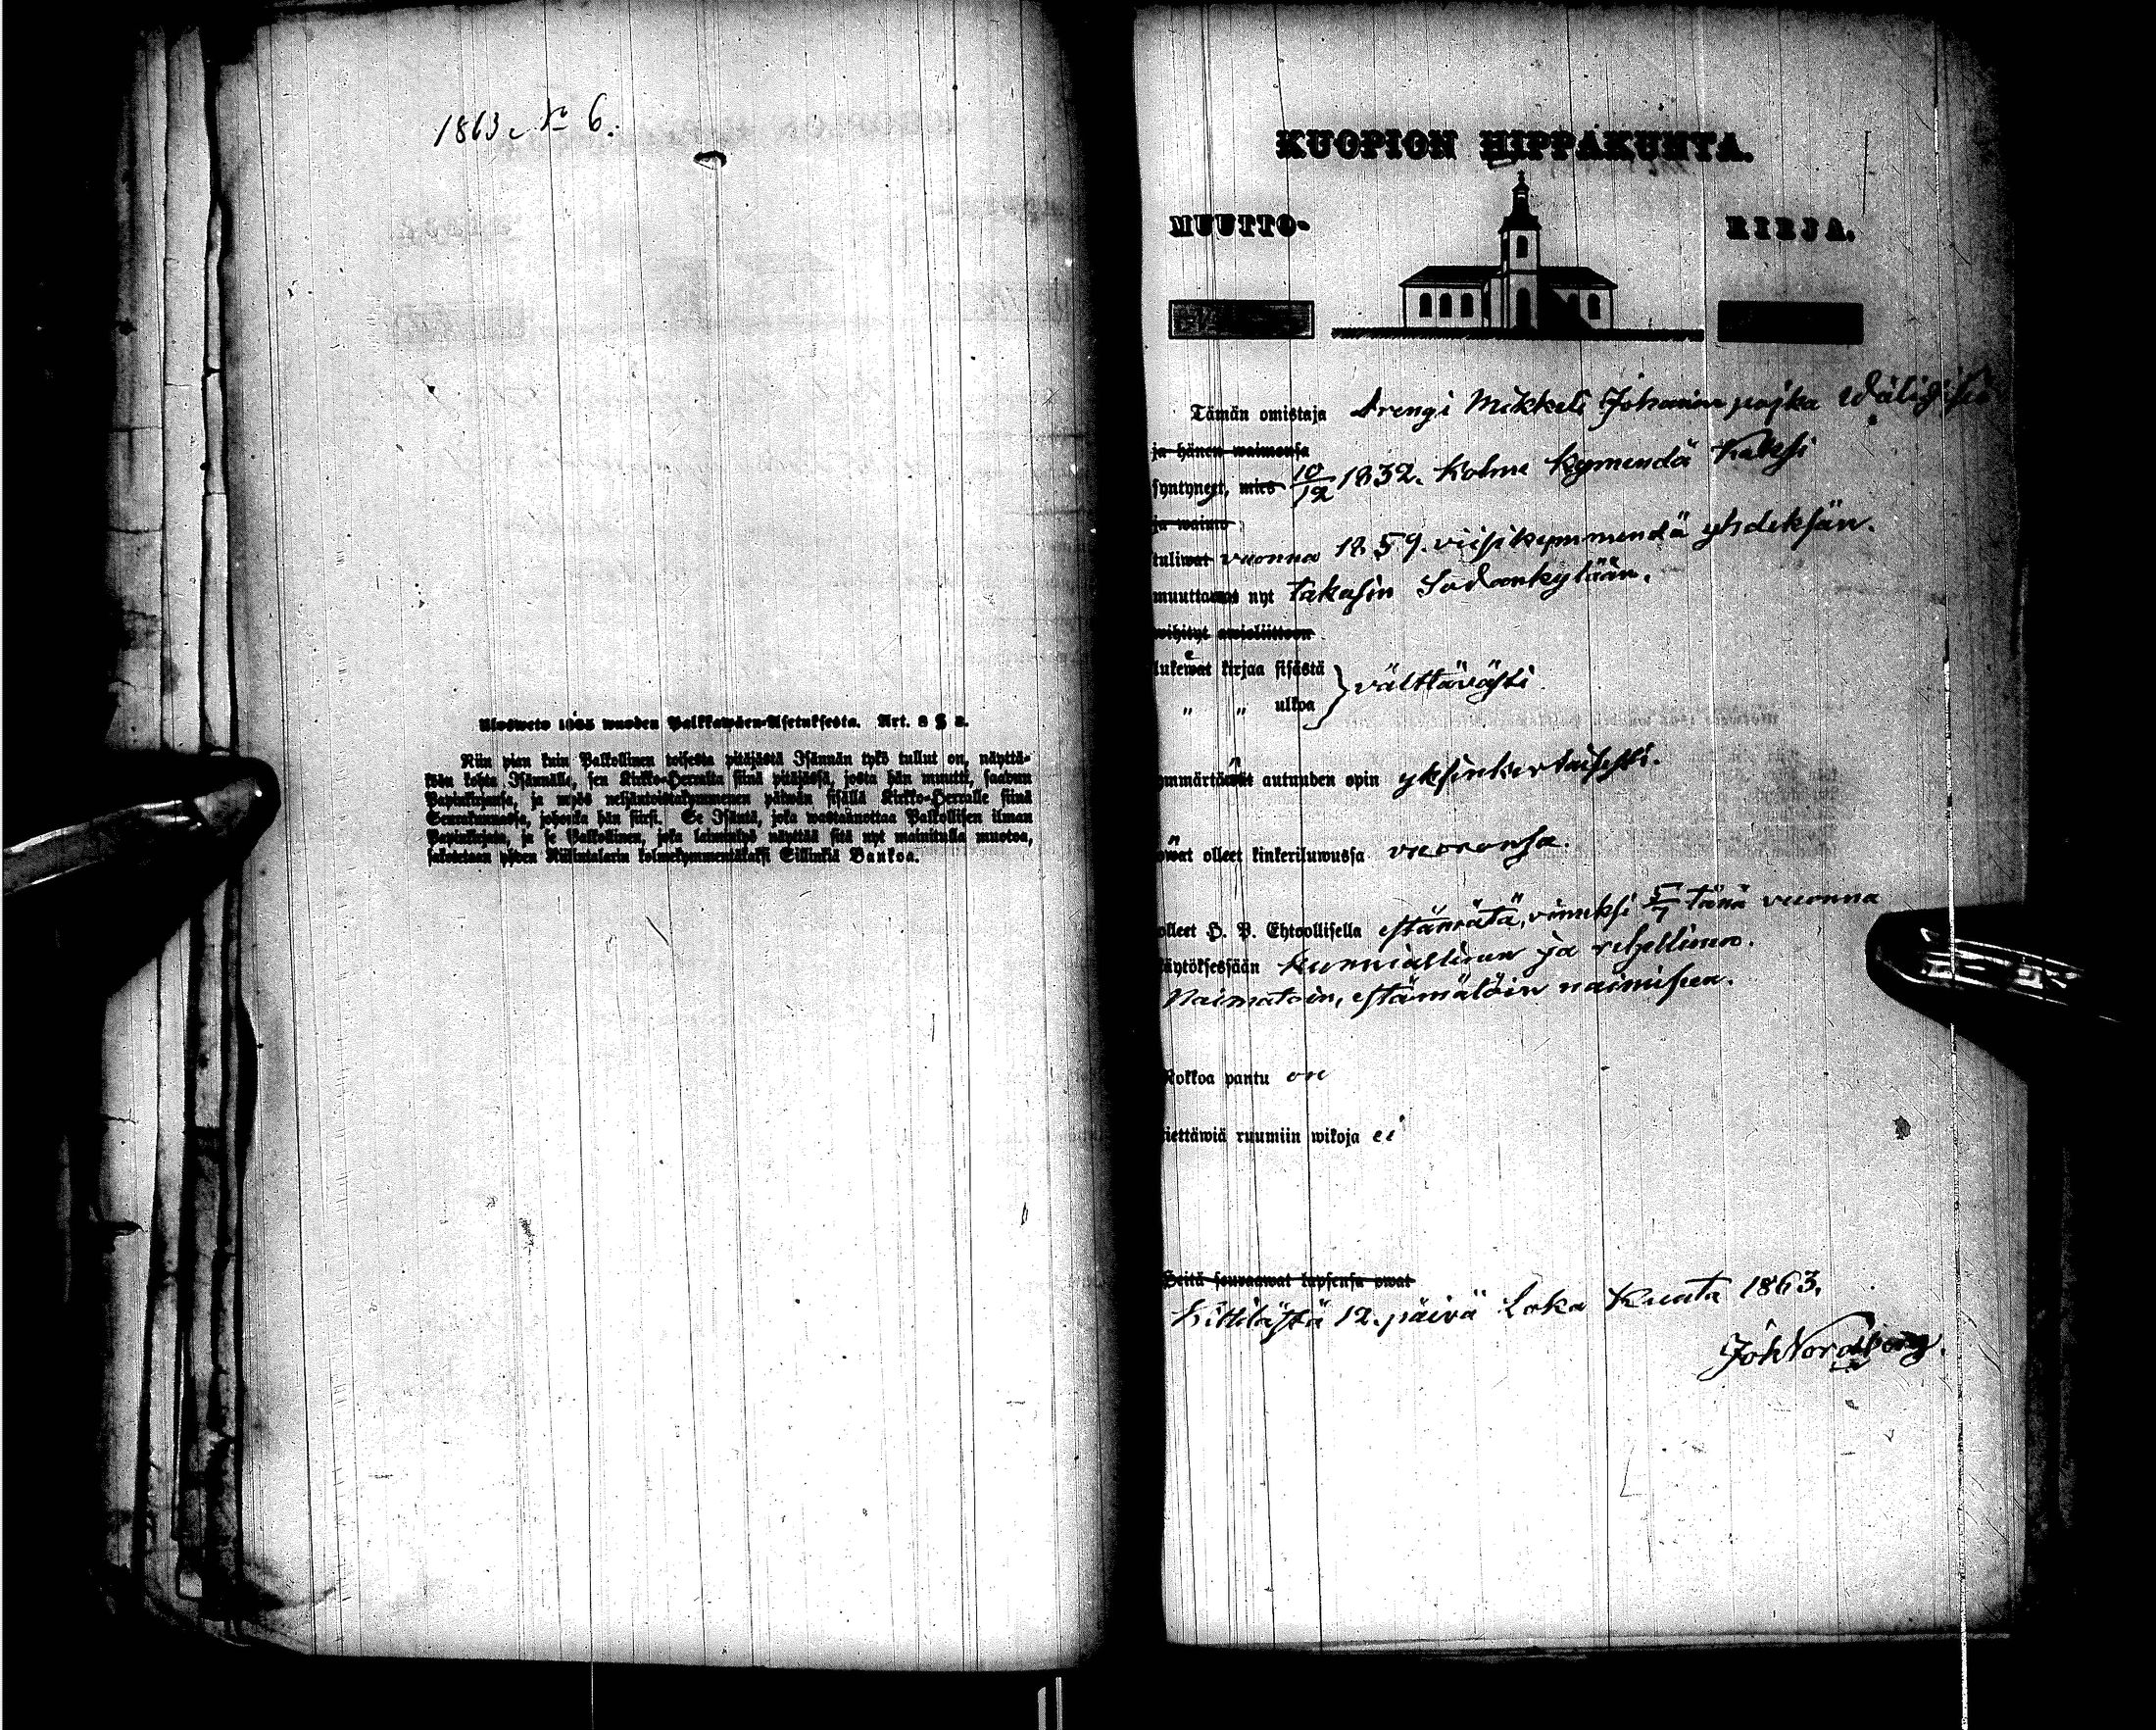 1863 No 6.
Ulosweto 1805 wuoden Palkkawäen-Asetuksesta. Art. 8 § 2.
Niin pian kuin Palkollinen toisesta pitäjästä Isännän tykö tullut on, näyttä-
kön kohta Isännälle, sen Kirkko-Herralta siinä pitäjässä, josta hän muutti, saadun
Papinkirjansa, ja myös neljäntoistakymmenen päiwän sisällä Kirkko-Herralle siinä
Seurakunnassa, johonka hän siirsi. Se Isäntä, joka wastaanottaa Palkollisen ilman
Papinkirjata, ja se Palkollinen, joka laiminlyö näyttää sitä nyt mainitulla muotoa,
sakotetaan yhden Riikintalarin kolmekymmentäkaksi Sillinkiä Bankoa.
KUOPION HIPPAKUNTA.
MUUTTO- KIRJA.
Tämän omistaja Drengi Mikkeli Johanin pojka
ja hänen waimonsa
syntyneet, mies 10/12 1832. Kolme kymendä Kaksi
ja waimo
tuliwat vuonna 1859. viisikymmendä yhdeksän.
muuttawat nyt takasin Sodankylään.
wihityt awioliittoon
lukewat kirjaa sisästä } välttävästi
" " ulkoa
ymmärtäwät autuuden opin yksinkertaisesti.
owat olleet kinkeriluwussa vuoronsa.
olleet H. P. Ehtoollisella estämätä, viimeksi 5/7 tänä vuonna
käytöksessään kunniallinen ja rehellinen.
Naimatoin, estämätöin naimiseen.
Rokkoa pantu on
tiettäwiä ruumiin wikoja ei
Heitä seuraawat lapsensa owat
Kittilästä 12. päivä Loka Kuuta 1863.
Joh Nordberg.